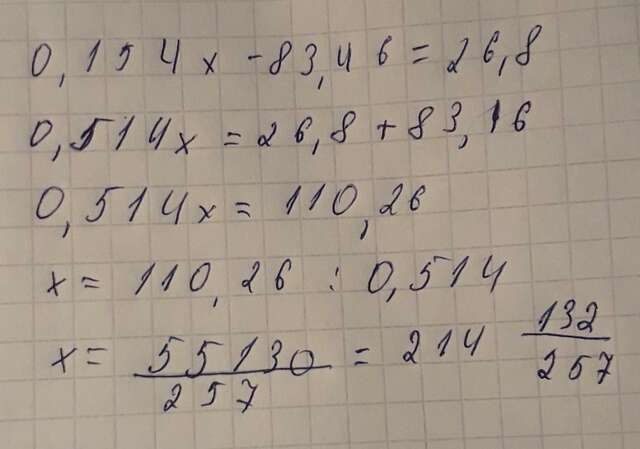 0,154x - 83,46 = 26,8
0,514x = 26,8 + 83,16
0,514x = 110,26
x = 110,26 : 0,514
x = 55130/257 = 214 132/257